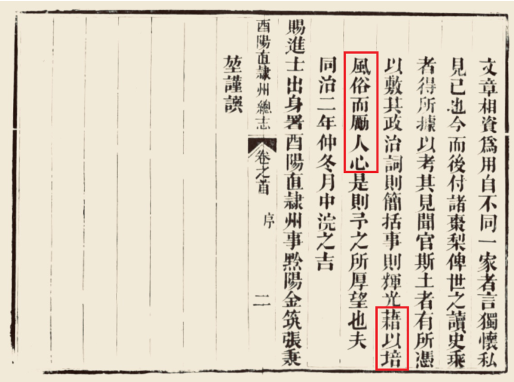 文章相資為用自不同一家者言獨懷私
見已也今而後付諸棗梨俾世之讀史乘
者得所據以考其見聞官斯土者有所憑
以敷其政治詞則簡括事則輝光藉以培
風俗而勵人心是則予之所厚望也夫
同治二年仲冬月中浣之吉
賜進士出身署酉陽直隸州事黔陽金筑張秉
酉陽直隸州總志 卷之首 序 二
堃謹譔